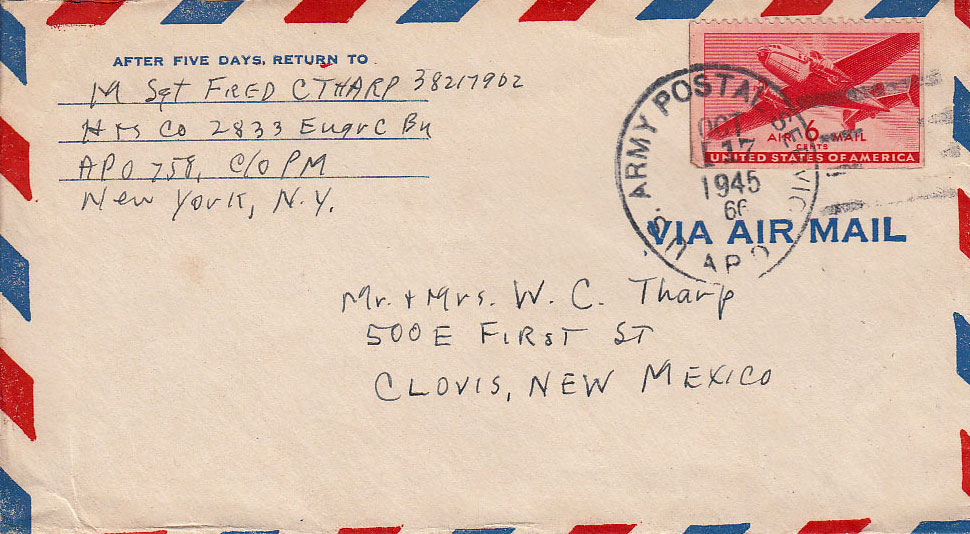 AFTER FIVE DAYS, RETURN TO
M Sgt FRED C THARP 38217902
Hrs Co 2833 Engr C Bn
APO 758, C/O PM
New York, N.Y.
U.S. ARMY POSTAL SERVICE
OCT
17
1945
66
A.P.O.
AIR 6 MAIL
CENTS
UNITED STATES OF AMERICA
VIA AIR MAIL
Mr. + Mrs. W. C. Tharp
500 E FIRST ST
CLOVIS, NEW MEXICO